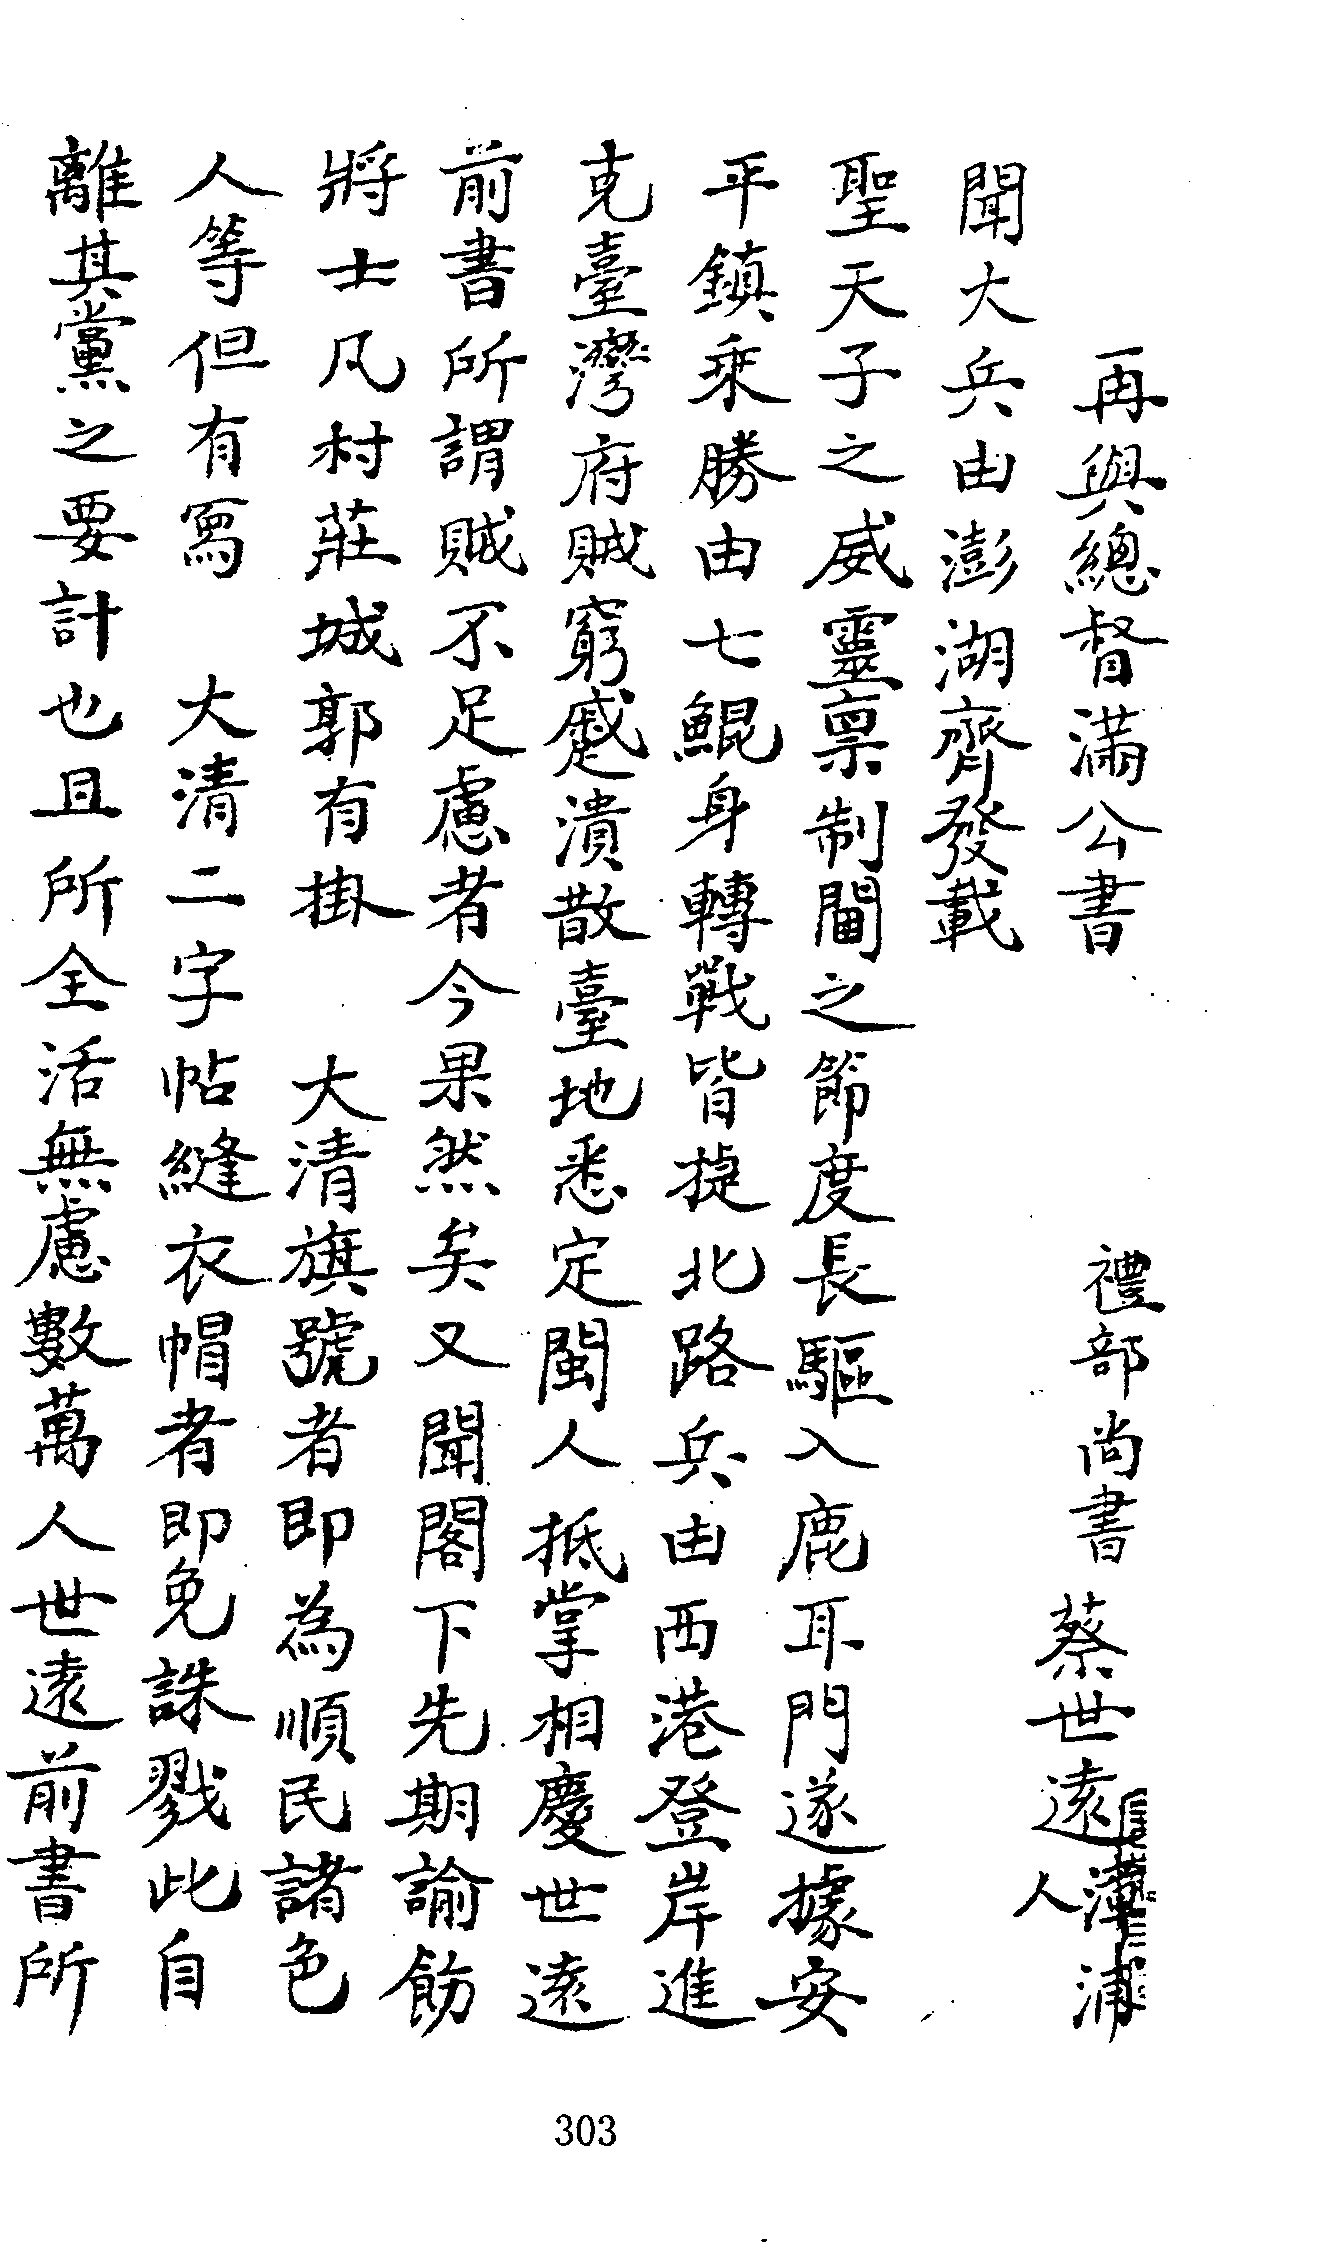 再與總督滿公書 禮部尚書 蔡世遠 漳浦人
聞大兵由澎湖齊發載
聖天子之威靈禀制閫之節度長驅入鹿耳門遂據安
平鎮乘勝由七鯤身轉戰皆捷北路兵由西港登岸進
克臺灣府賊窮蹙潰散臺地悉定閩人抵掌相慶世遠
前書所謂賊不足慮者今果然矣又聞閣下先期諭飭
將士凡村莊城郭有掛 大清旗號者即為順民諸色
人等但有寫 大清二字帖縫衣帽者即免誅戮此自
離其黨之要計也且所全活無慮數萬人世遠前書所
303